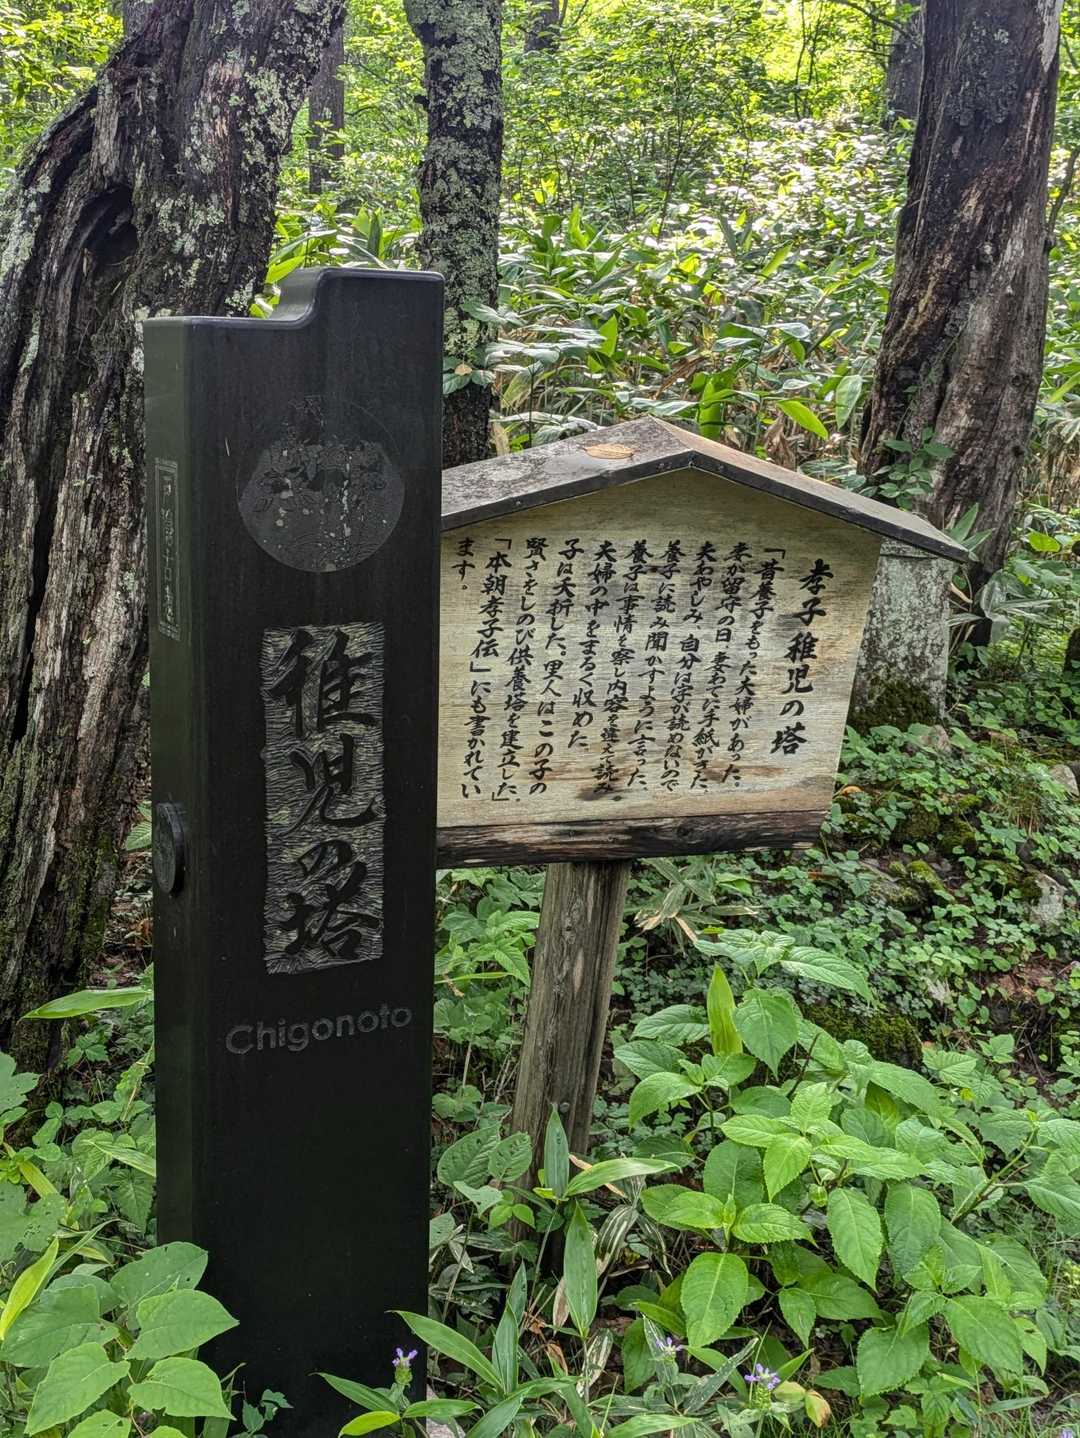 稚児の塔
Chigonoto
孝子稚児の塔
「昔養子をもった夫婦があった。
妻が留守の日、妻あてに手紙がきた、
夫あやしみ、自分は字が読めないので
養子に読み聞かすように言った、
養子は事情を察し内容を違えて読み、
夫婦の中をまるく収めた
子は夭折した、里人はこの子の
賢さをしのび供養塔を建立した」
「本朝孝子伝」にも書かれてい
ます。